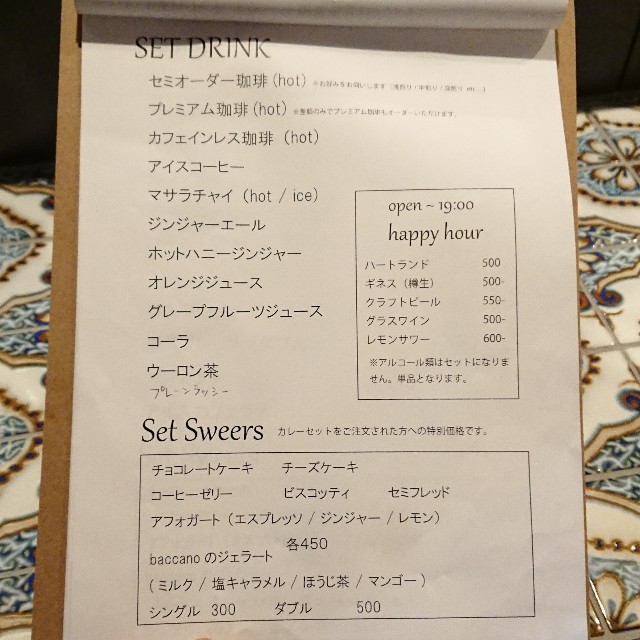 SET DRINK
セミオーダー珈琲(hot) ※お好みをお伺いします(浅煎り/中煎り/深煎り etc...)
プレミアム珈琲(hot) ※差額のみでプレミアム珈琲もオーダーいただけます。
カフェインレス珈琲 (hot)
アイスコーヒー
マサラチャイ (hot / ice)
ジンジャーエール
ホットハニージンジャー
オレンジジュース
グレープフルーツジュース
コーラ
ウーロン茶
プレーンラッシー
open ~ 19:00
happy hour
ハートランド 500
ギネス(樽生) 500-
クラフトビール 550-
グラスワイン 500-
レモンサワー 600-
※アルコール類はセットになりま
せん。単品となります。
Set Sweers カレーセットをご注文された方への特別価格です。
チョコレートケーキ チーズケーキ
コーヒーゼリー ビスコッティ セミフレッド
アフォガート(エスプレッソ / ジンジャー / レモン)
各450
baccano のジェラート
(ミルク / 塩キャラメル / ほうじ茶 / マンゴー)
シングル 300 ダブル 500